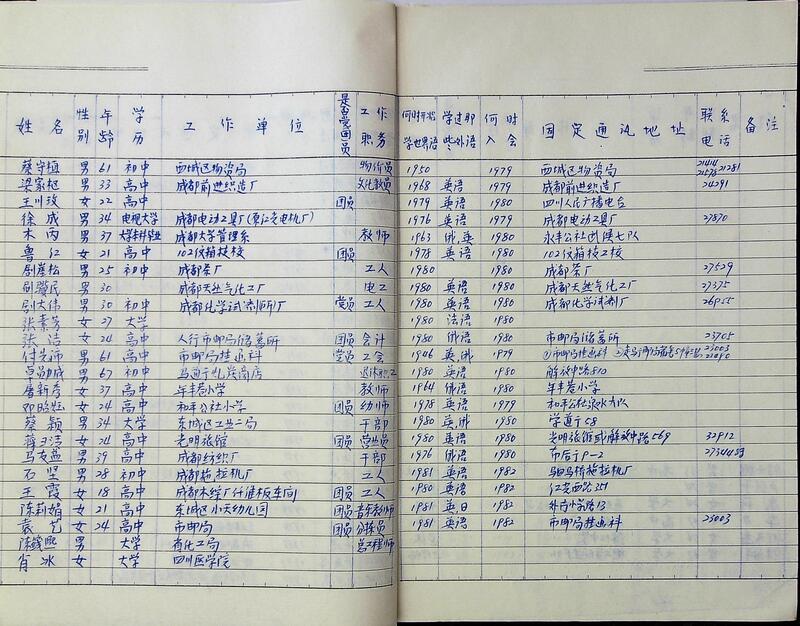 姓名 性别 年龄 学历 工作单位 是否党团员 工作职务 何时开始学世界语 学过那些外语 何时入会 固定通讯地址 联系电话 备注
蔡守植 男 61 初中 西城区物资局 物价员 1950 1979 西城区物资局 21414
梁家枢 男 33 高中 成都前进织造厂 文化教员 1968 英语 1979 成都前进织造厂 24291
王川玫 女 22 高中 团员 1979 英语 1980 四川人民广播电台
徐成 男 34 电视大学 成都电动工具厂 1976 英语 1979 成都电动工具厂 27870
木丙 男 37 大学本科毕业 成都大学管理系 教师 1963 俄.英 1980 永丰公社 七队
鲁江 女 21 高中 102仪箱技校 团员 1978 英语 1980 102仪箱技工校
松 男 25 初中 成都茶厂 工人 1980 1980 成都茶厂 27529
民 男 30 成都天然气化工厂 电工 1980 英语 1980 成都天然气化工厂 27375
大伟 男 30 初中 成都化学试剂厂 党员 工人 1980 英语 1980 成都化学试剂厂 26955
张素芳 女 27 大学 1980 法语 1980
张洁 女 24 高中 人行市邮局储蓄所 团员 会计 1980 俄语 1980 市邮局储蓄所 23705
付先沛 男 61 高中 市邮局挂递科 党员 工会 1946 英.俄 1979 ①市邮局挂递科 23003
卓勋成 男 67 初中 退休职工 1980 英语 1980 解放中路810
屠新秀 女 37 高中 年丰巷小学 教师 1964 俄语 1980 年丰巷小学
邓晓钰 女 24 高中 和平公社小学 团员 幼师 1978 英语 1979 和平公社
蔡颖 男 34 大学 东城区工业二局 干部 1980 英.俄 1980 学道街58
蒋日洁 女 24 高中 光明张馆 团员 营业员 1980 英语 1980 光明张馆或解放中路569 32912
马友燕 男 39 高中 成都纺织厂 干部 1976 俄语 1980 布后街9-2
石坚 男 28 初中 成都拖拉机厂 工人 1981 英语 1982 拖拉机厂
王霞 女 18 高中 成都木综厂纤维板车间 团员 工人 1980 英语 1982 红光西路351
陈莉娟 女 21 高中 东城区小天幼儿园 团员 音乐教师 1981 英.日 1982
袁艺 女 24 高中 市邮局 团员 分拣员 1981 英语 1982 市邮局挂递科 23003
陈 熙 男 大学 省化工局 总工程师
肖冰 女 大学 四川医学院